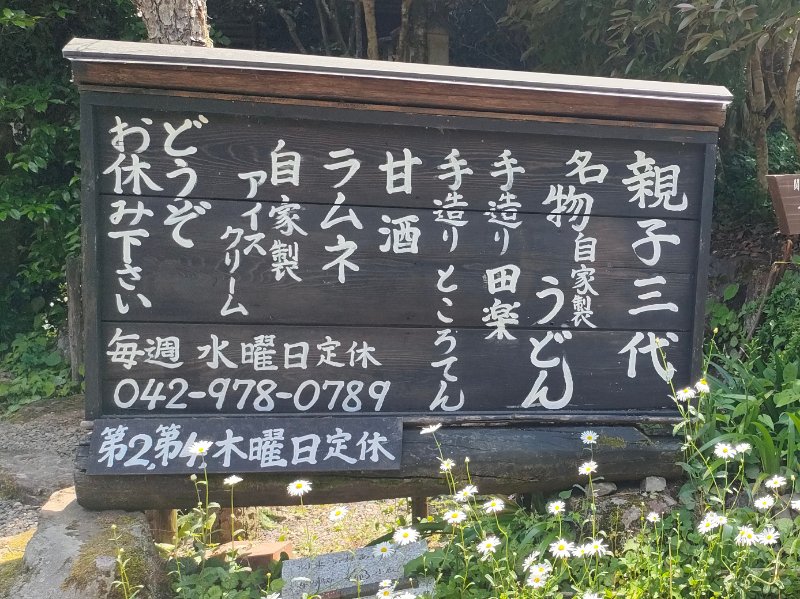 親子三代
名物自家製うどん
手造り田楽
手造りところてん
甘酒
ラムネ
自家製
アイスクリーム
どうぞ
お休み下さい
毎週 水曜日定休
042-978-0789
第2.第4木曜日定休